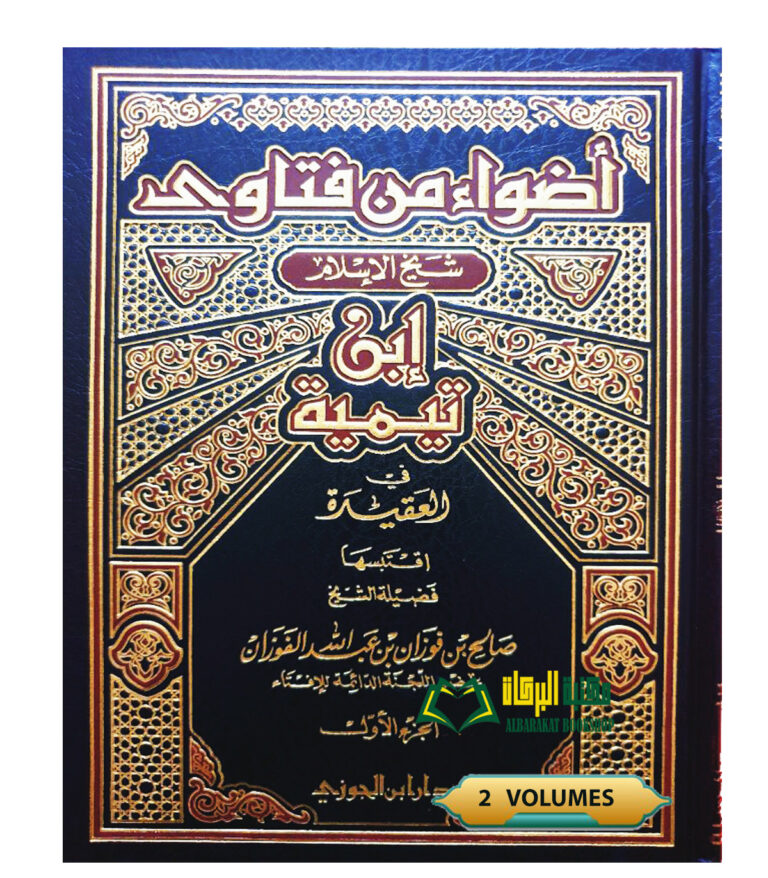 أضواء من فتاوى
شيخ الإسلام
إبن
تيمية
في
العقيدة
اقتبسها
فضيلة الشيخ
صالح بن فوزان بن عبد الله الفوزان
اللجنة الدائمة للإفتاء
مكتبة البركات
ALBARAKAT BOOKSHOP
الجزء الأول
دار ابن الجوزي
2 VOLUMES